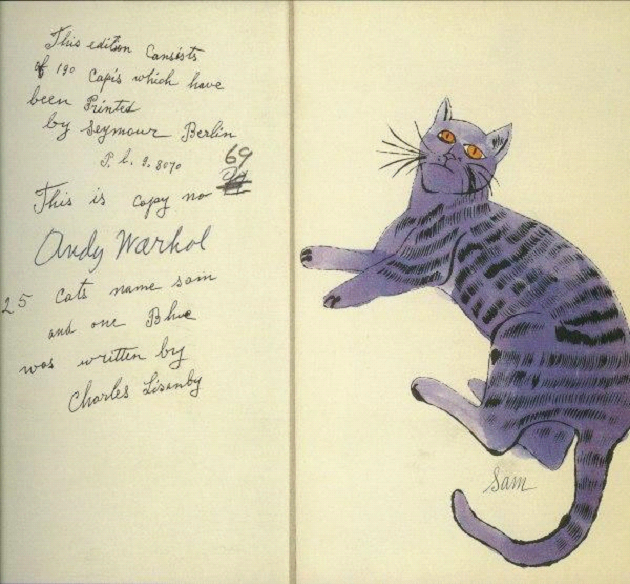 This edition Consists
of 190 Capis which have
been Printed
by Seymour Berlin
69
This is copy no
Andy Warhol
25 Cats name sam
and one Blue
was written by
Charles Lisanby
Sam